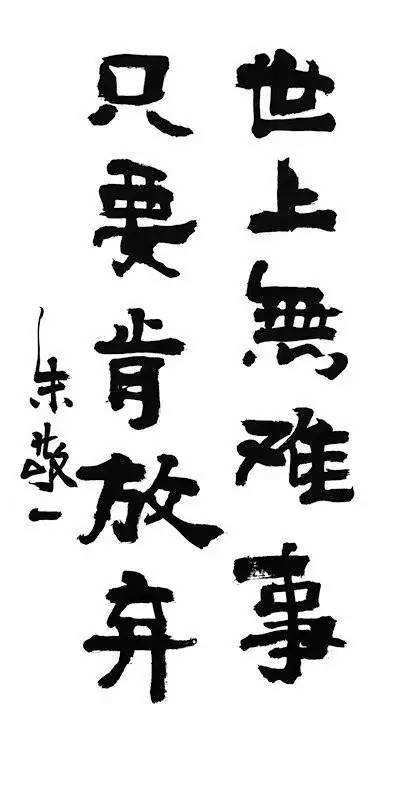 世上無难事
只要肯放弃
朱敬一